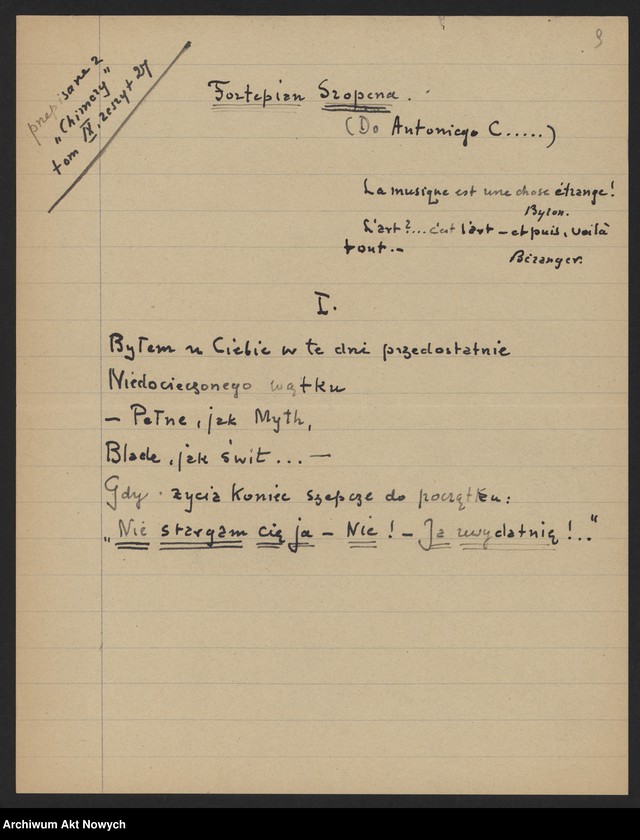 9
przepisane z
„Chimery”
tom IV, zeszyt 27
Fortepian Szopena.
(Do Antoniego C.....)
La musique est une chose étrange!
Byron.
L'art?... c'est l'art – et puis, voilà
tout.–
Béranger.
I.
Byłem u Ciebie w te dni przedostatnie
Niedocieczonego wątku
– Pełne, jak Myth,
Blade, jak świt...—
Gdy życia koniec szepcze do początku:
„Nie stargam cię ja – Nie! – Ja uwydatnię!..”
Archiwum Akt Nowych